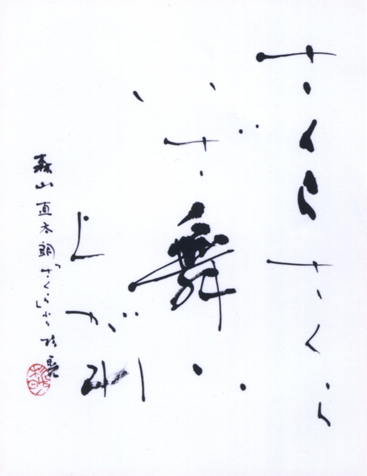 さくら さくら
いざ舞い
上が州
森山直太朗「さくら」より